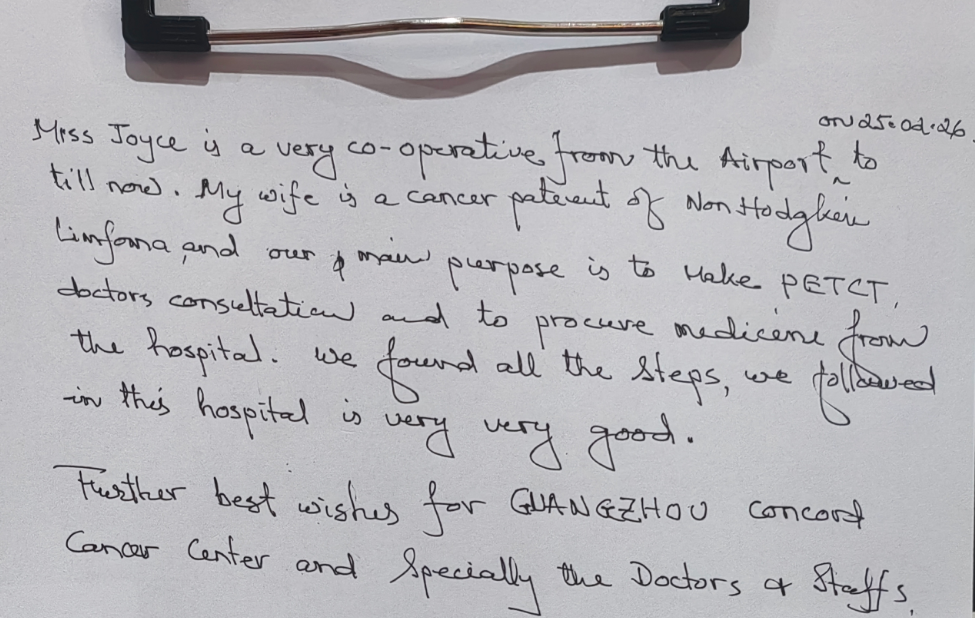 on 25.02.26
Miss Joyce is a very co-operative from the Airport to
till now. My wife is a cancer pateient of Non Hodgkein
Limfoma and our main purpose is to Make PETCT,
doctors consultation and to procure medicine from
the hospital. We found all the steps, we followed
in this hospital is very very good.
Further best wishes for GUANGZHOU Concord
Cancer Center and Specially the Doctors & Staffs.